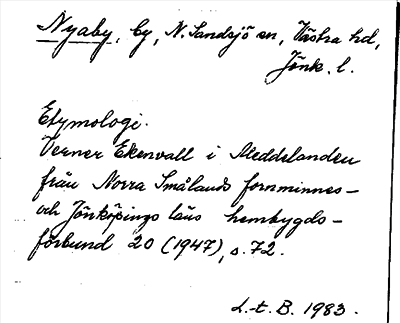 Nyaby, by, N. Sandsjö sn, Västra hd,
Jönk. l.
Etymologi.
Verner Ekenvall i Meddelanden
från Norra Smålands fornminnes-
och Jönköpings läns hembygds-
förbund 20 (1947), s. 72.
L-t. B. 1983.